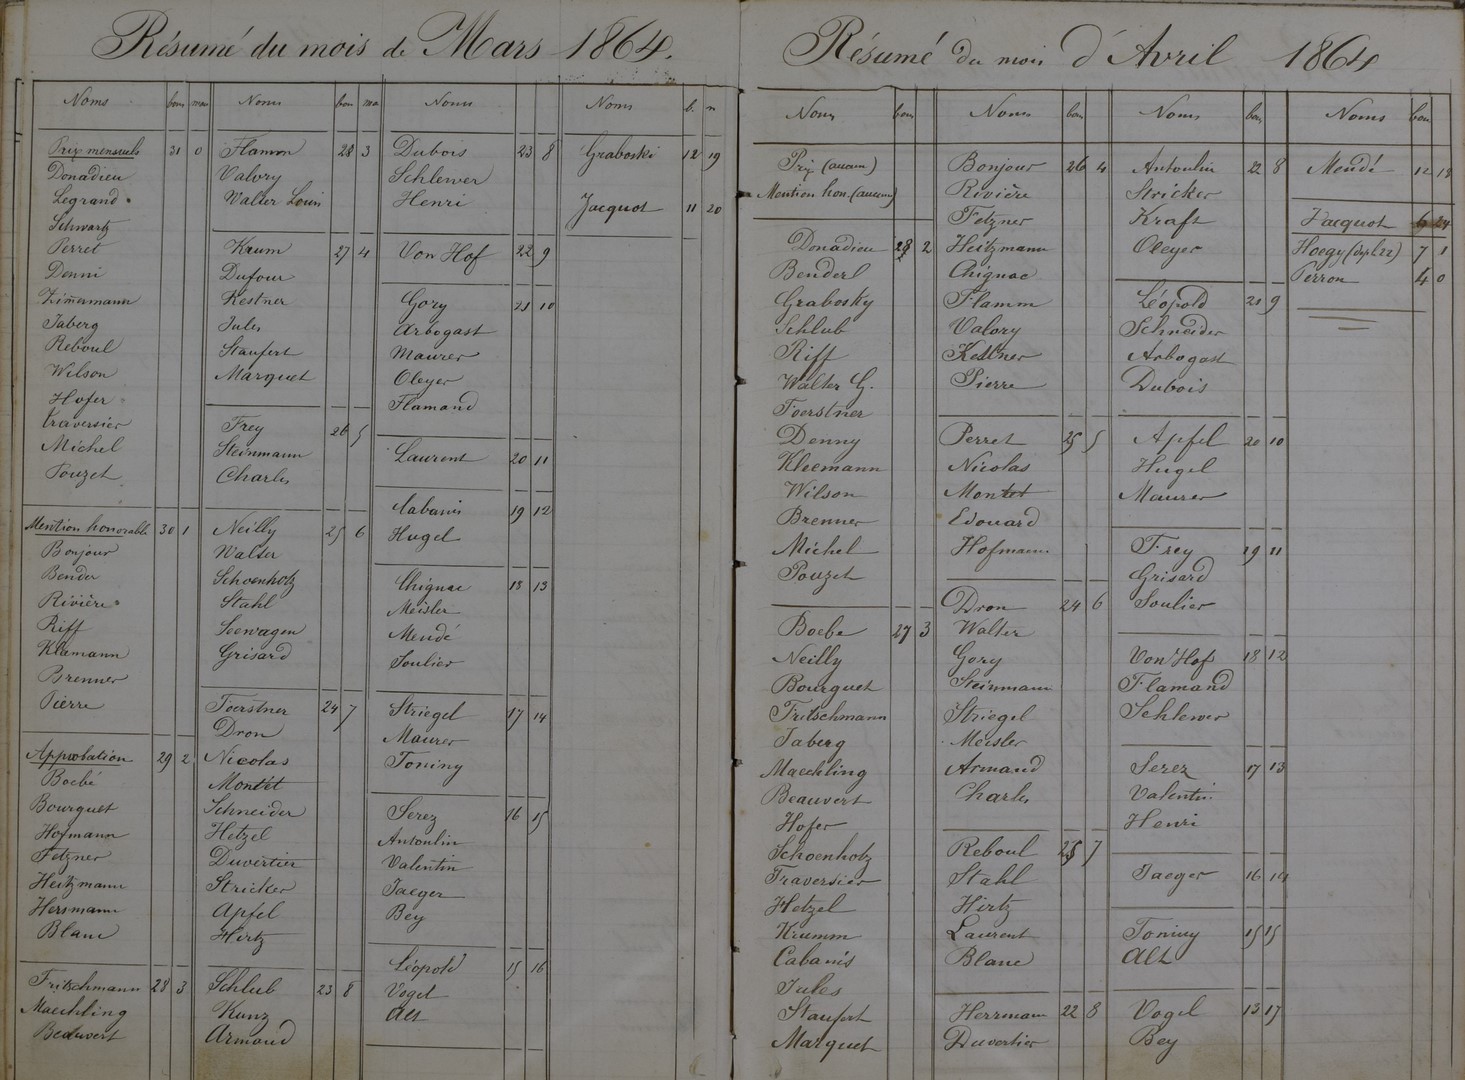 Résumé du mois de Mars 1864.
Noms bons mau
Prix mensuels 31 0
Donadieu
Legrand
Schwartz
Perret
Denni
Zimermann
Jaberg
Reboul
Wilson
Hofer
Traversier
Michel
Pouzet
Mention honorable 30 1
Bonjour
Bender
Rivière
Riff
Kleemann
Brenner
Pierre
Approbation 29 2
Boebé
Bourguet
Hofmann
Fetzner
Heitzmann
Hersmann
Blanc
Fritschmann 28 3
Maechling
Beauvert
Noms bon ma
Flamm 28 3
Valory
Walter Louis
Krum 27 4
Dufour
Kestner
Jules
Staufert
Marquet
Frey 26 5
Steinmann
Charles
Neilly 25 6
Walter
Schoenholz
Stahl
Seewagen
Grisard
Foerstner 24 7
Dron
Nicolas
Montét
Schneider
Hetzel
Duvertier
Stricker
Apfel
Hirtz
Schlub 23 8
Kunz
Armand
Noms
Dubois 23 8
Schlewer
Henri
Von Hof 22 9
Gory 21 10
Arbogast
Maurer
Oleyer
Flamand
Laurent 20 11
Cabanis 19 12
Hugel
Chignac 18 13
Meisler
Mendé
Soulier
Striegel 17 14
Maurer
Toniny
Serez 16 15
Antoulin
Valentin
Jaeger
Bey
Léopold 15 16
Vogel
Alt
Noms b. m
Graboski 12 19
Jacquot 11 20
Résumé du mois d'Avril 1864
Noms bons
Prix (aucun)
Mention hon. (aucune)
Donadieu 28 2
Benderl
Grabosky
Schlub
Riff
Walter G.
Foerstner
Denny
Kleemann
Wilson
Brenner
Michel
Pouzet
Boebe 27 3
Neilly
Bourguet
Fritschmann
Jaberg
Maechling
Beauvert
Hofer
Schoenholz
Traversier
Hetzel
Krumm
Cabanis
Jules
Staufert
Marquet
Noms bon
Bonjour 26 4
Rivière
Fetzner
Heitzmann
Chignac
Flamm
Valory
Kestner
Pierre
Perret 25 5
Nicolas
Montet
Edouard
Hofmann
Dron 24 6
Walter
Gory
Steinmann
Striegel
Meisler
Armand
Charles
Reboul 23 7
Stahl
Hirtz
Laurent
Blanc
Herrmann 22 8
Duvertier
Noms bon
Antoulin 22 8
Stricker
Kraft
Oleyer
Léopold 21 9
Schneider
Arbogast
Dubois
Apfel 20 10
Hugel
Maurer
Frey 19 11
Grisard
Soulier
Von Hof 18 12
Flamand
Schlewer
Serez 17 13
Valentin
Henri
Jaeger 16 14
Toniny 15 15
Alt
Vogel 13 17
Bey
Noms bon
Mendé 12 18
Jacquot 6 24
Hoegy (dep le 22) 7 1
Perron 4 0